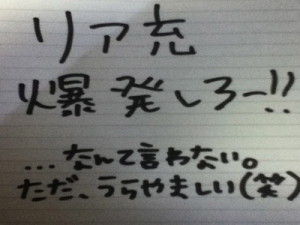 リア充
爆発しろー!!
...なんて言わない。
ただ、うらやましい(笑)